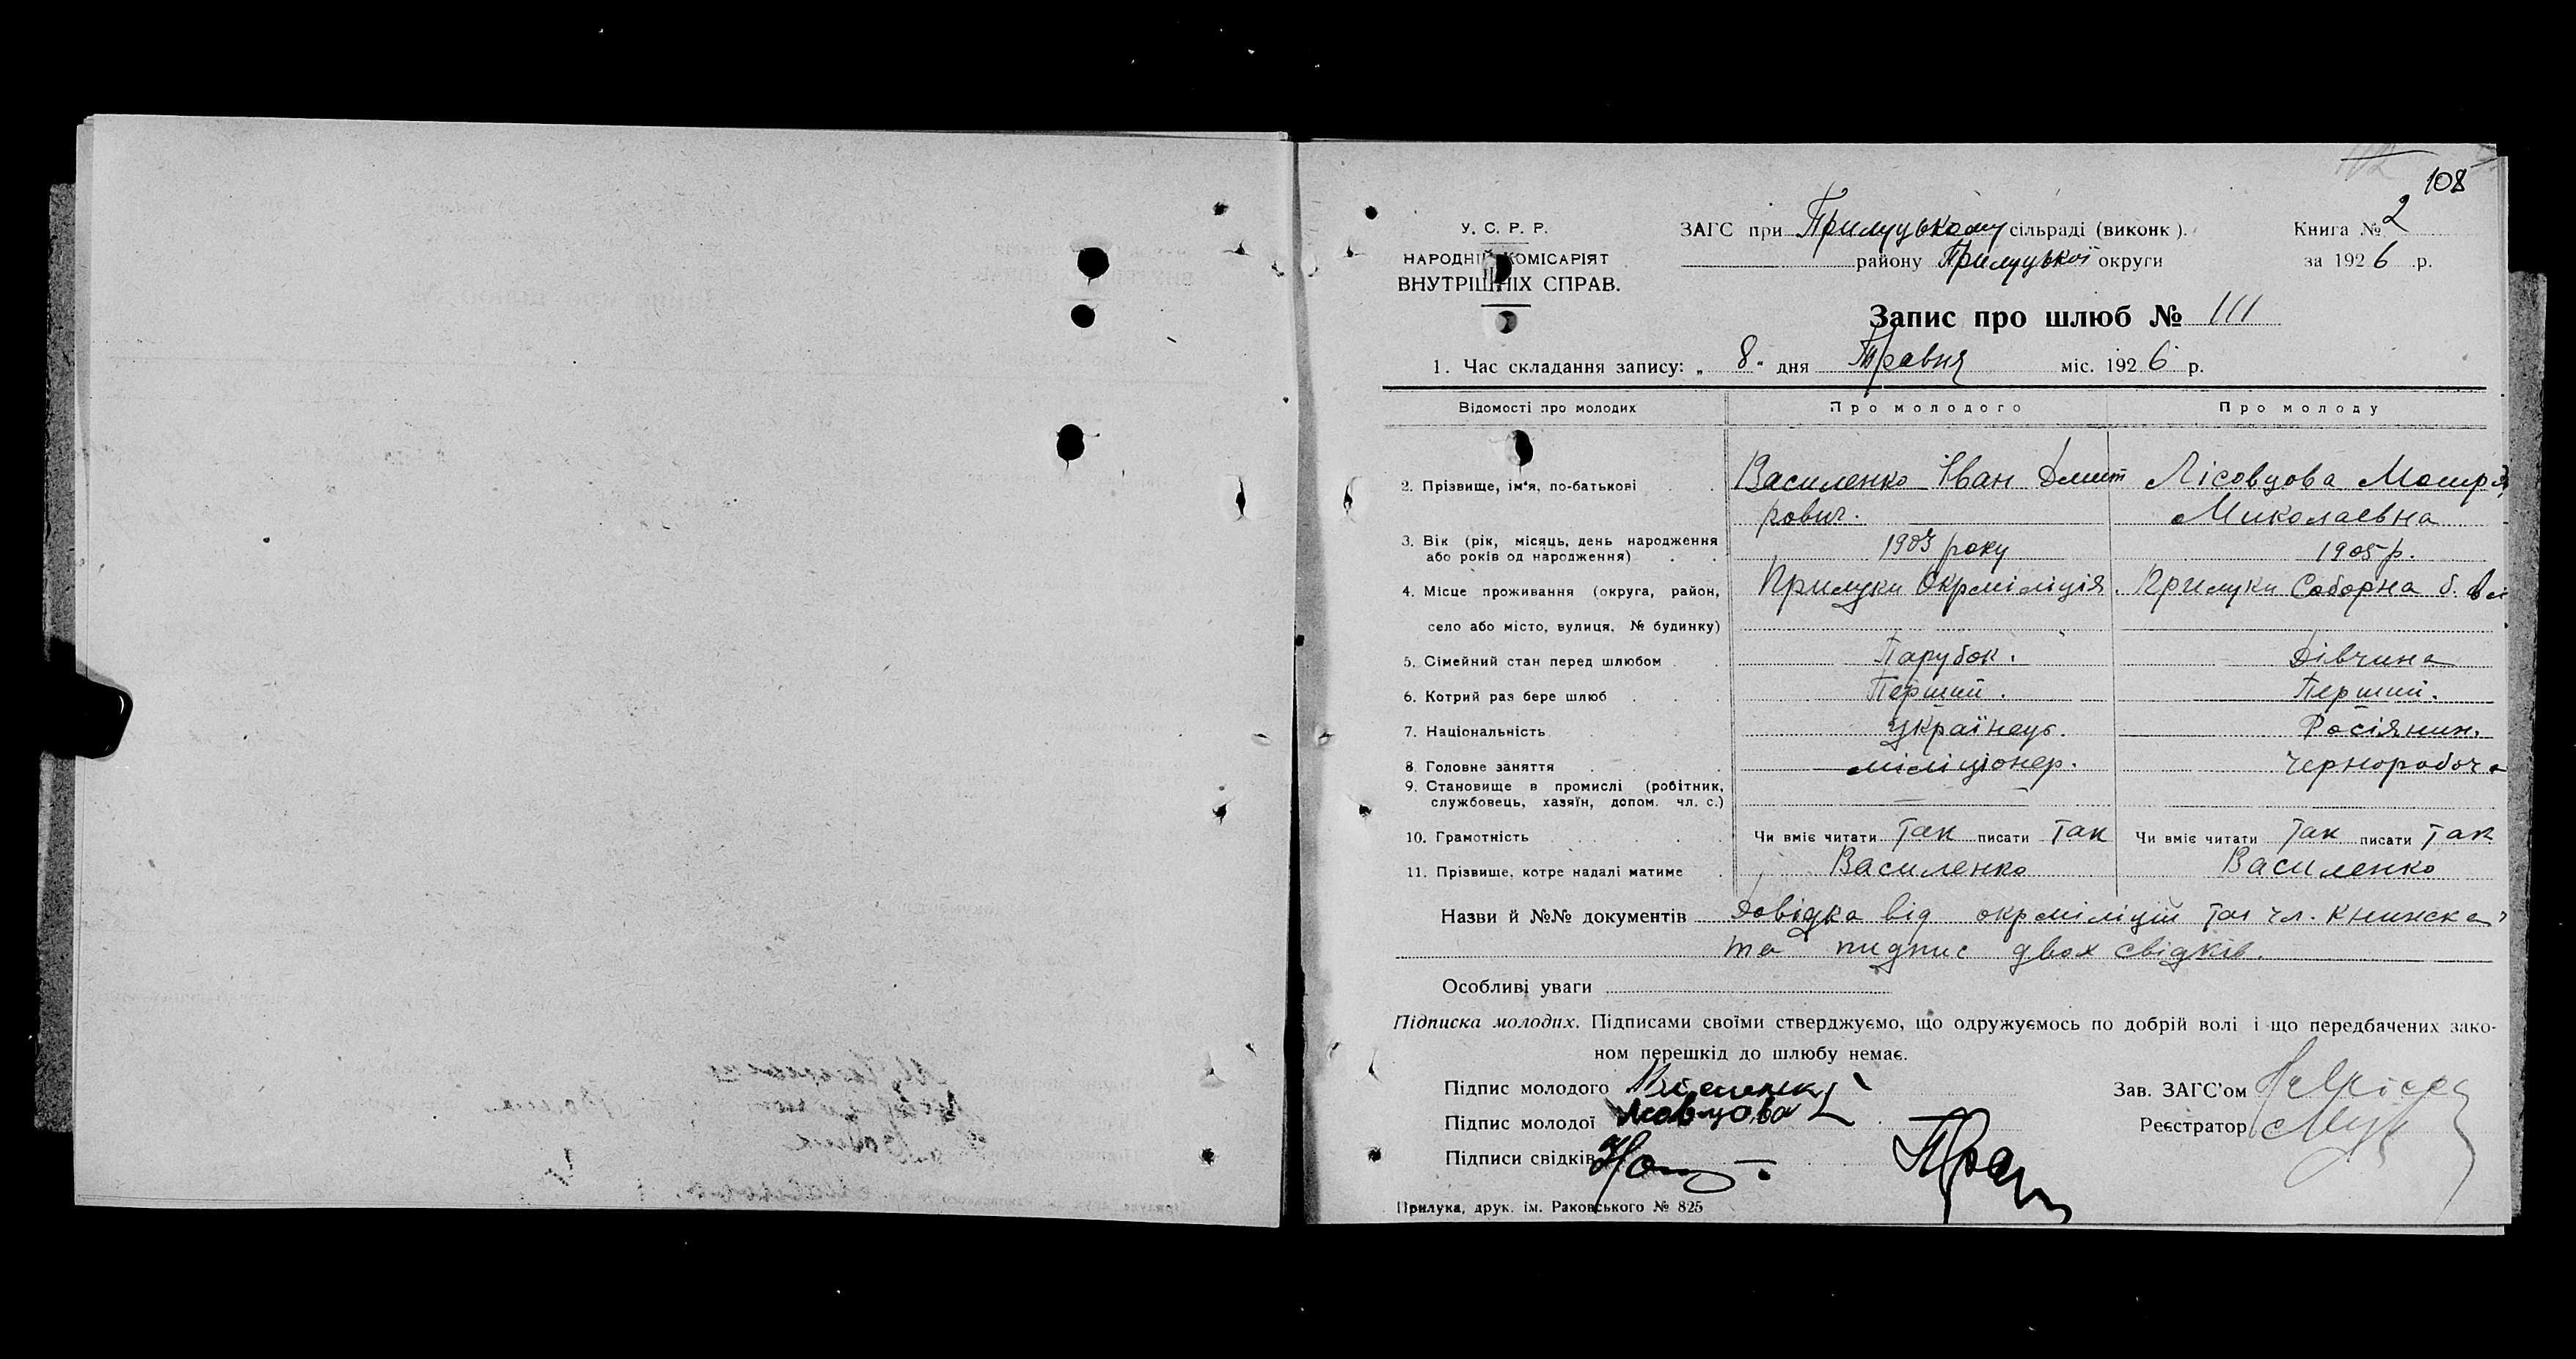 108
У. С. Р. Р.
НАРОДНІЙ КОМІСАРІЯТ
ВНУТРІШНІХ СПРАВ.
ЗАГС при Прилуцькому сільраді (виконк).
району Прилуцької округи
Книга № 2
за 1926 р.
Запис про шлюб № 111
1. Час складання запису: „ 8 " дня Травня міс. 1926 р.
Відомості про молодих Про молодого Про молоду
2. Прізвище, ім'я, по-батькові Василенко Іван Дмит Лісовцова Мотря
рович. Миколаевна
3. Вік (рік, місяць, день народження
або років од народження) 1903 року 1905 р.
4. Місце проживання (округа, район, Прилуки Окрміліція. Прилуки Соборна б.
село або місто, вулиця, № будинку)
5. Сімейний стан перед шлюбом Парубок. Дівчина
6. Котрий раз бере шлюб Перший. Перший.
7. Національність Українець. Росіянин.
8. Головне заняття міліціонер. Чернороб
9. Становище в промислі (робітник,
службовець, хазяїн, допом. чл. с.)
10. Грамотність Чи вміє читати Так писати Так Чи вміє читати Так писати Так
11. Прізвище, котре надалі матиме Василенко Василенко
Назви й №№ документів Довідка від окрміліціи та чл. книжка
та пидпис двох свідків.
Особливі уваги
Підписка молодих. Підписами своїми стверджуємо, що одружуємось по добрій волі і що передбачених зако-
ном перешкід до шлюбу немає.
Підпис молодого Зав. ЗАГС'ом
Підпис молодої Реєстратор
Підписи свідків
Прилука, друк. ім. Раковського № 825